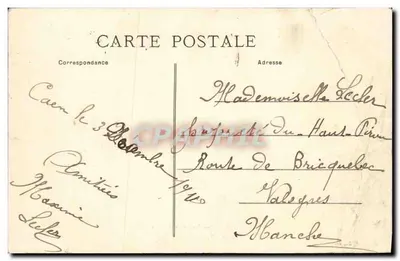 CARTE POSTALE
Correspondance
Adresse
Caen le 3 Décembre 1910
Amitiés
Maxime
Lecler
Mademoiselle Lecler
du Haut
Route de Bricquebec
Valognes
Manche